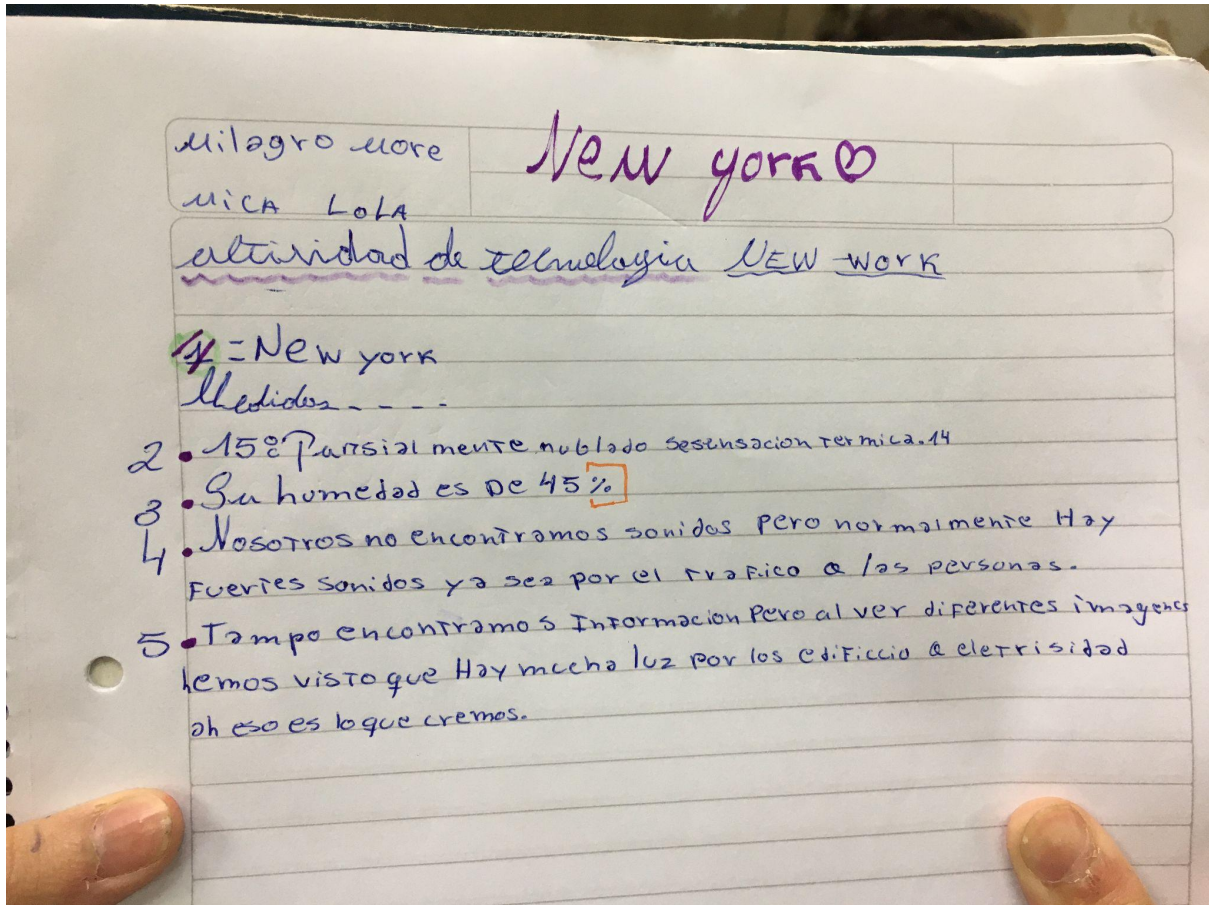 Milagro More
New york
MiCA LOLA
actividad de tecnologia NEW WORK
1 = New york
Medidas - - - -
2 • 15º Parsial mente nublado sesensacion termica. 14
3 • Su humedad es De 45%
4 • Nosotros no encontramos sonidos pero normalmente Hay
Fuertes sonidos ya sea por el trafico a las personas.
5 • Tampo encontramos Informacion Pero al ver diferentes imagenes
hemos visto que Hay mucha luz por los edificcio a eletrisidad
ah eso es lo que cremos.